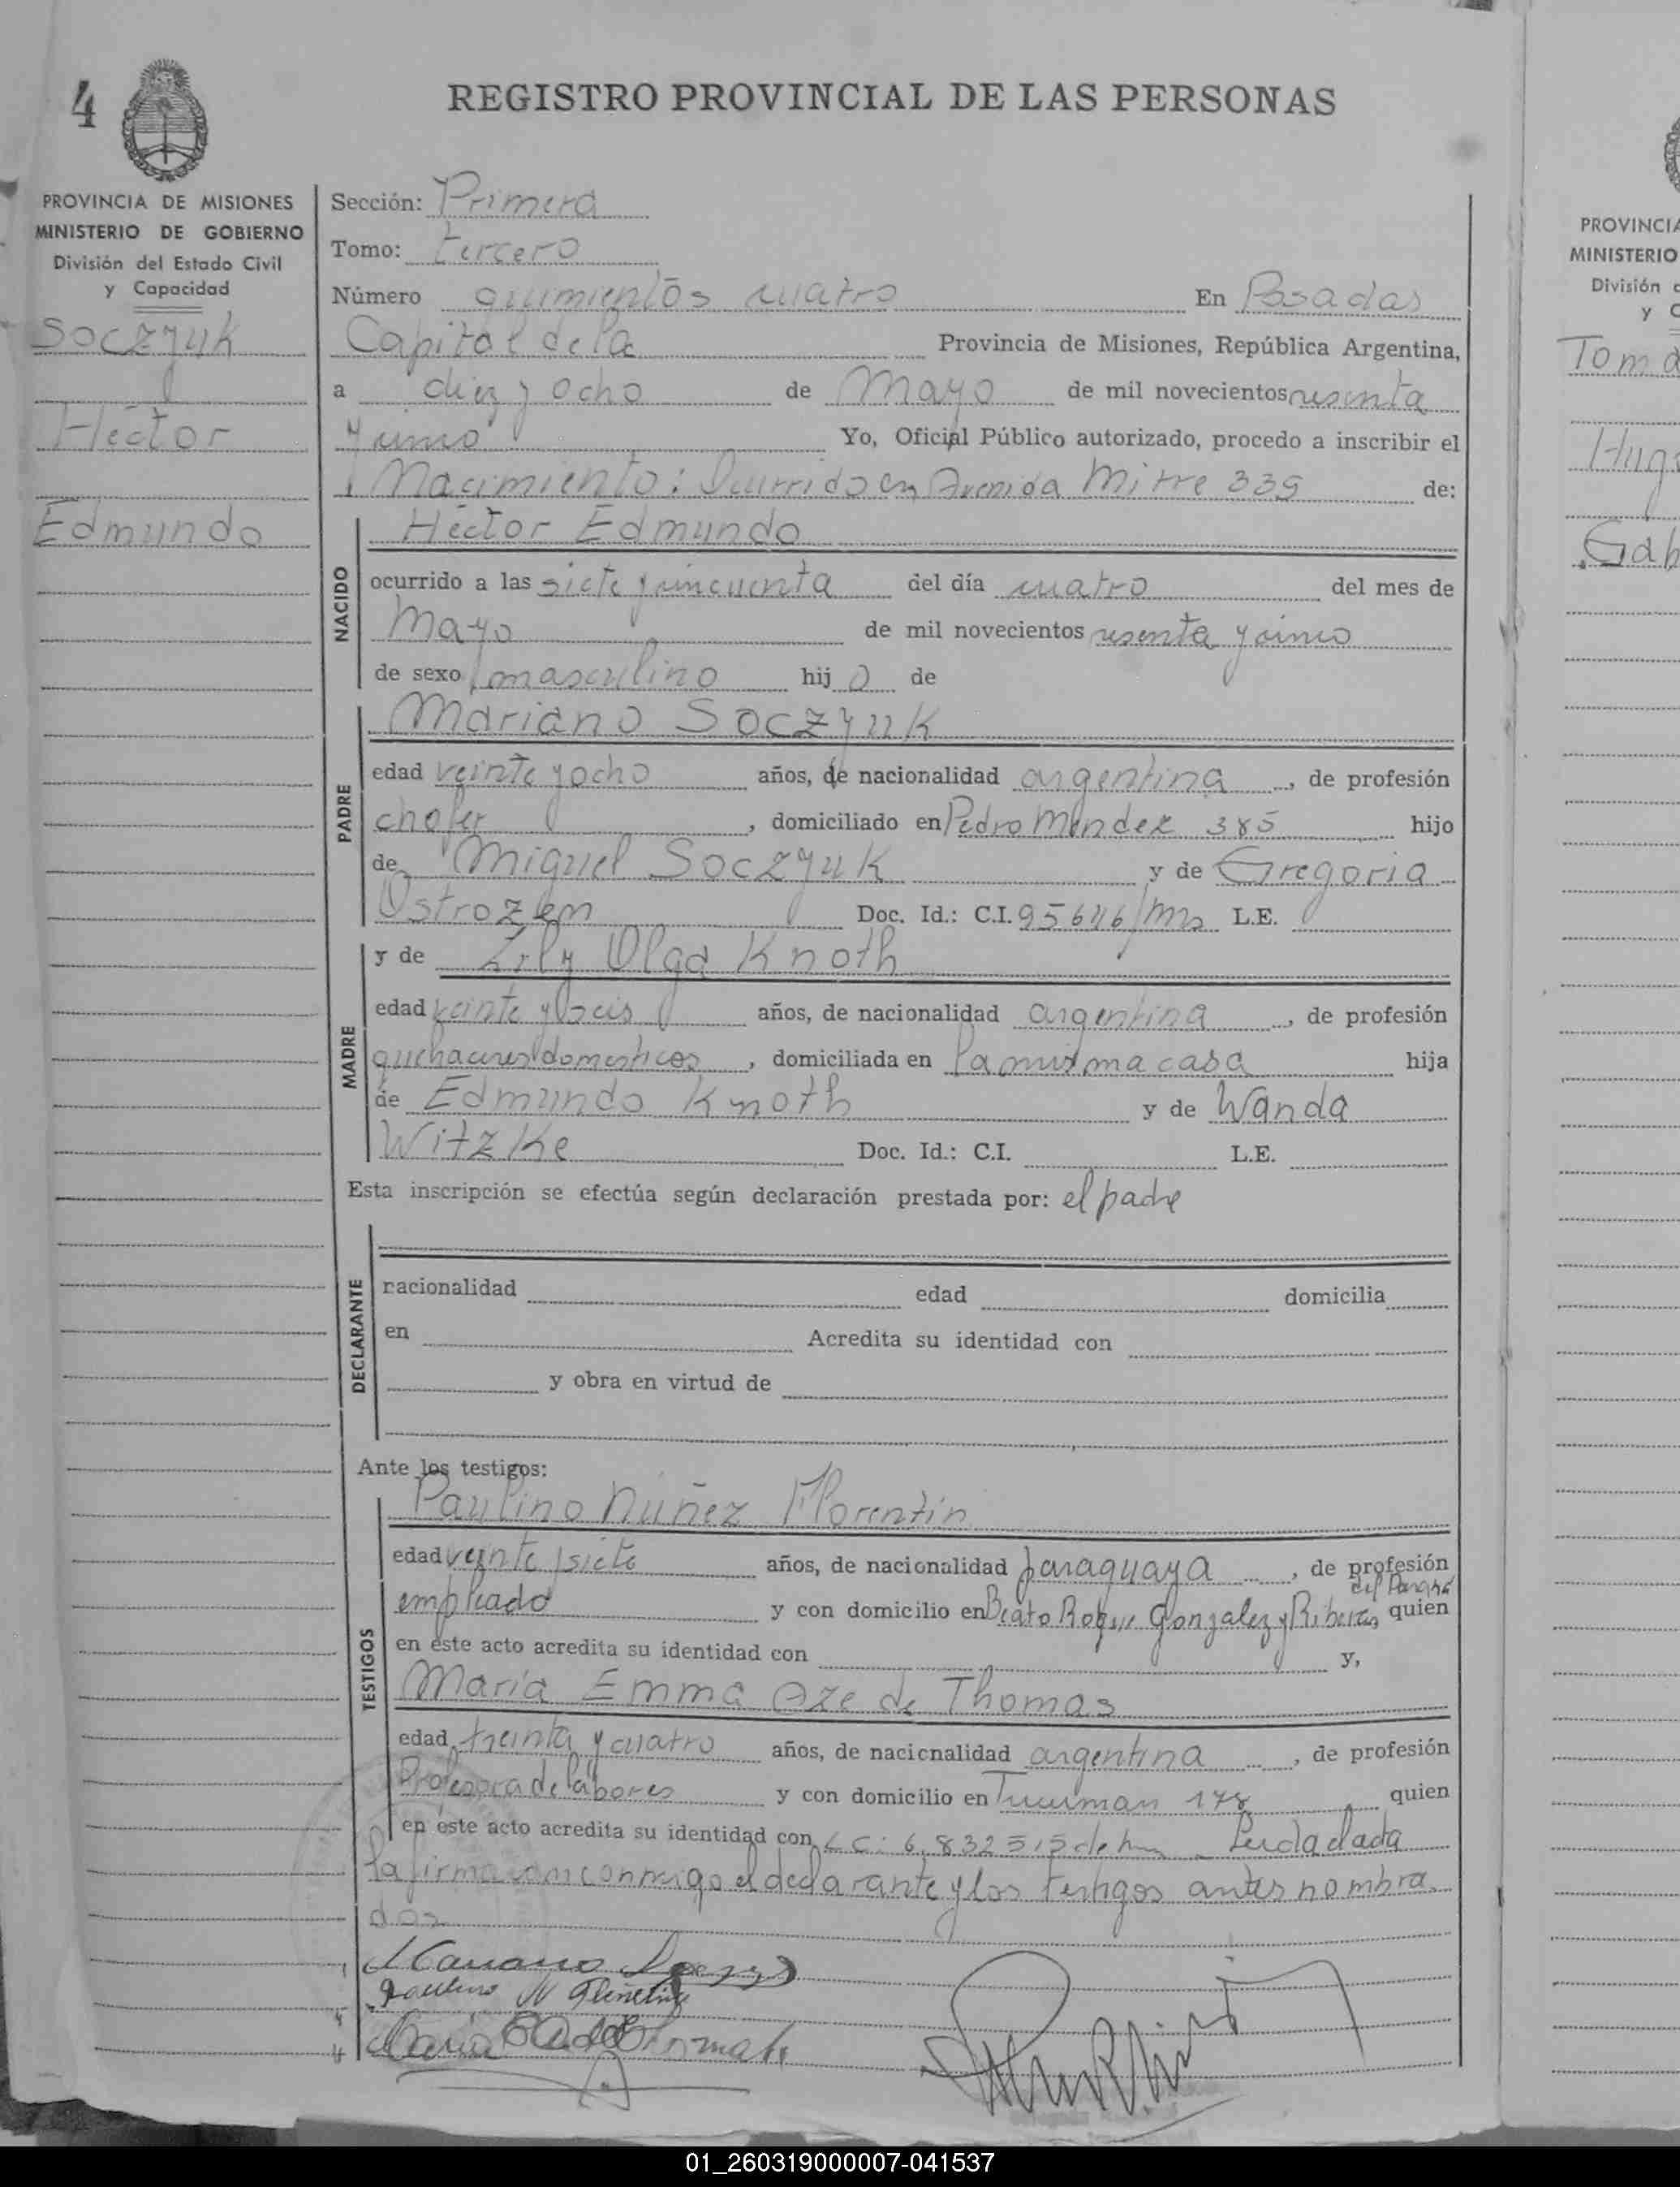 4
REGISTRO PROVINCIAL DE LAS PERSONAS
PROVINCIA DE MISIONES
MINISTERIO DE GOBIERNO
División del Estado Civil
y Capacidad
Soczyuk
Héctor
Edmundo
Sección: Primera
Tomo: tercero
Número quinientos cuatro En Posadas
Capital de la Provincia de Misiones, República Argentina,
a diez y ocho de Mayo de mil novecientos sesenta
y cinco Yo, Oficial Público autorizado, procedo a inscribir el
Nacimiento: Ocurrido en Avenida Mitre 339 de:
NACIDO
Héctor Edmundo
ocurrido a las siete y cincuenta del día cuatro del mes de
Mayo de mil novecientos sesenta y cinco
de sexo masculino hij o de
PADRE
Mariano Soczyuk
edad veinte y ocho años, de nacionalidad argentina, de profesión
chofer, domiciliado en Pedro Mendez 385 hijo
de Miguel Soczyuk y de Gregoria
Ostrozen Doc. Id.: C.I. 95646/Ms L.E.
MADRE
y de Lily Olga Knoth
edad veinte y seis años, de nacionalidad argentina, de profesión
quehaceres domesticos, domiciliada en la misma casa hija
de Edmundo Knoth y de Wanda
Witzke Doc. Id.: C.I. L.E.
Esta inscripción se efectúa según declaración prestada por: el padre
DECLARANTE
nacionalidad edad domicilia
en Acredita su identidad con
y obra en virtud de
Ante los testigos:
TESTIGOS
Paulino Nuñez Florentín
edad veinte y siete años, de nacionalidad paraguaya, de profesión
empleado y con domicilio en Beato Roque Gonzalez y Riberas del Paraná, quien
en este acto acredita su identidad con y,
María Emma Oze de Thomas
edad treinta y cuatro años, de nacionalidad argentina, de profesión
Profesora de labores y con domicilio en Tucuman 178 quien
en este acto acredita su identidad con L C: 6.832515 Leída el acta
la firman conmigo el declarante y los testigos antes nombra
dos
PROVINCIA
MINISTERIO
División d
y C
Tom
Hug
Gab
01_260319000007-041537